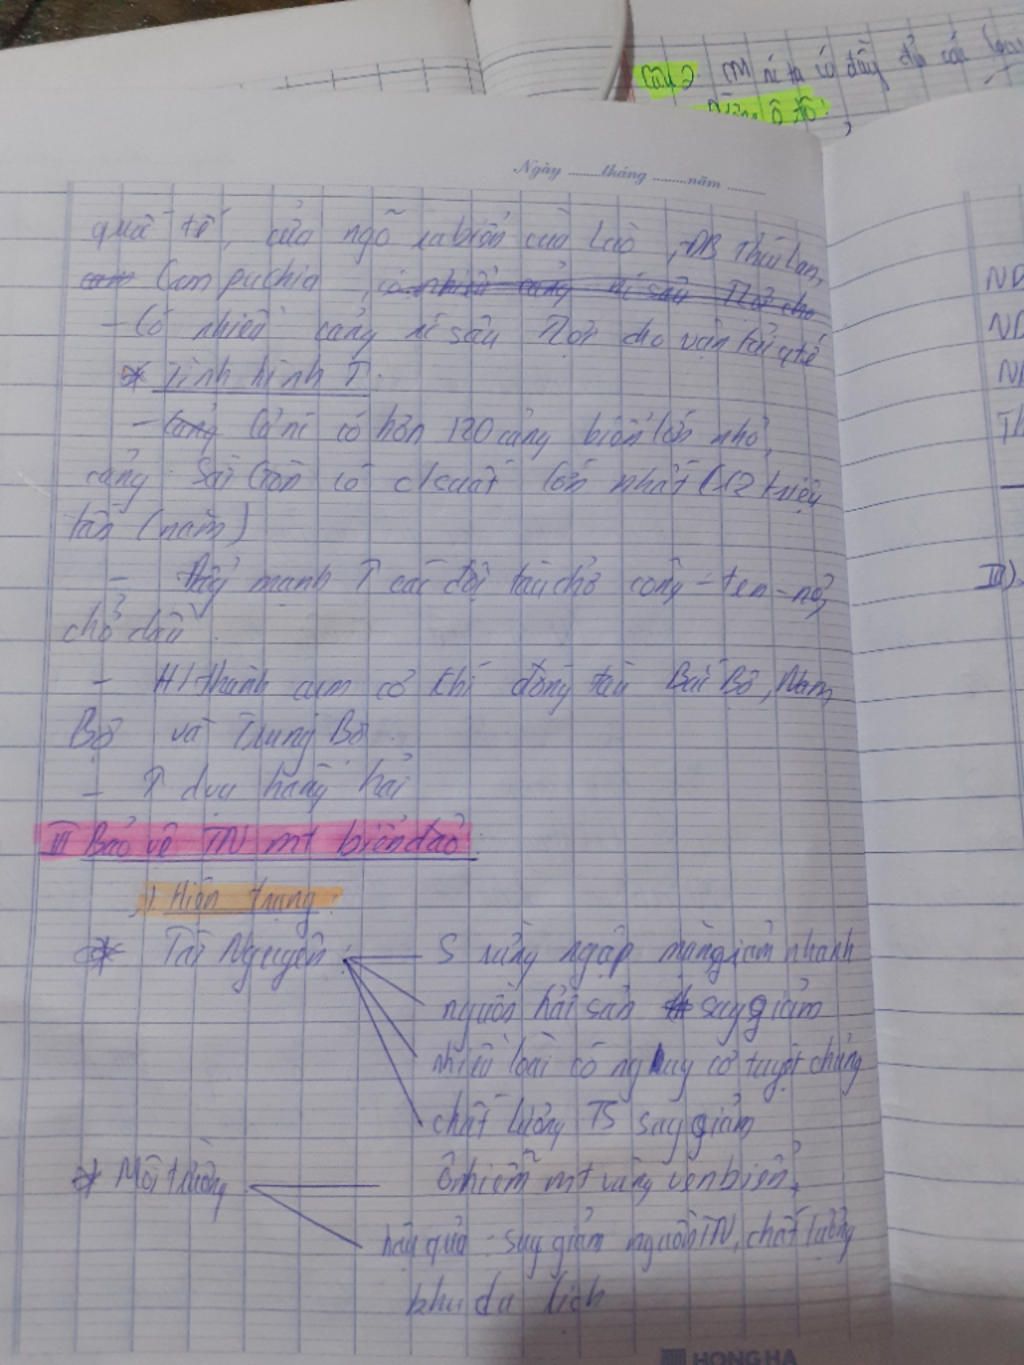 Câu 2 CM nc ta có đầy đủ các
Ngày ........tháng ........năm ........
quốc tế, cửa ngõ ra biển của Lào, ĐB Thái Lan,
Cam puchia
- Có nhiều cảng nc sâu Tlợi cho vận tải qtế
* Tình hình ↑
- Cả nc có hơn 120 cảng biển lớn nhỏ,
cảng Sài Gòn có clsuất lớn nhất (12 triệu
tấn /năm)
- Đẩy mạnh ↑ các đội tàu chở công-ten-nơ,
chở dầu.
- Hthành cụm cơ khí đóng tàu Bắc Bộ, Nam
Bộ và Trung Bộ
- ↑ dvụ hàng hải
III Bảo vệ TN mt biển đảo
1) Hiện trạng
* Tài Nguyên: S rừng ngập mặn giảm nhanh
nguồn hải sản suy giảm
nhiều loài có nguy cơ tuyệt chủng
chất lượng TS suy giảm
* Môi trường ô nhiễm mt vùng ven biển
hậu quả: suy giảm nguồn TN, chất lượng
khu du lịch
ND
ND
III).
HONG HA